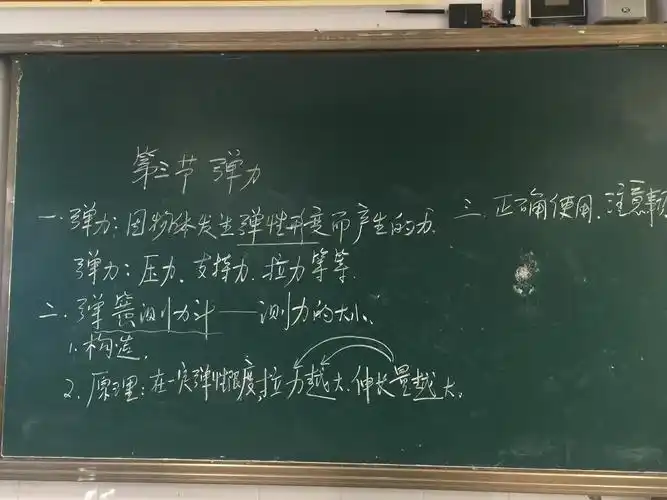 第三节 弹力
一.弹力:因物体发生弹性形变而产生的力.
弹力:压力.支持力.拉力等等.
二.弹簧测力计——测力的大小.
1.构造.
2.原理:在一定弹性限度,拉力越大.伸长量越大.
三.正确使用.注意事